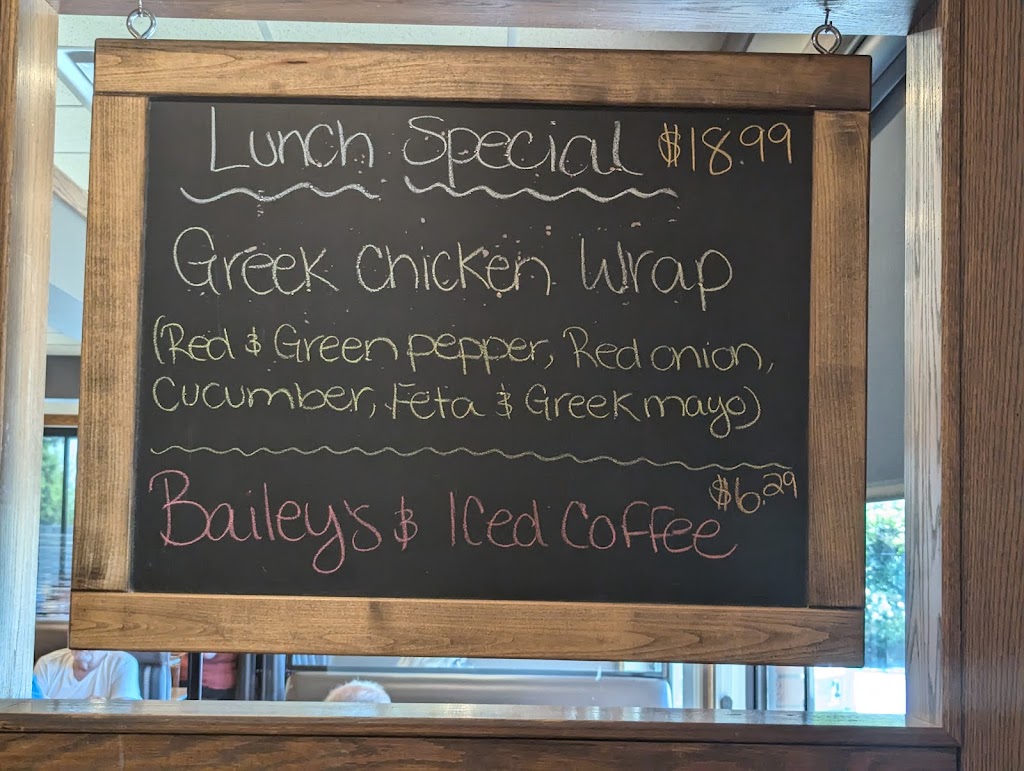 Lunch Special $18.99
Greek Chicken Wrap
(Red & Green pepper, Red onion,
Cucumber, Feta & Greek mayo)
$6.29
Bailey's & Iced Coffee